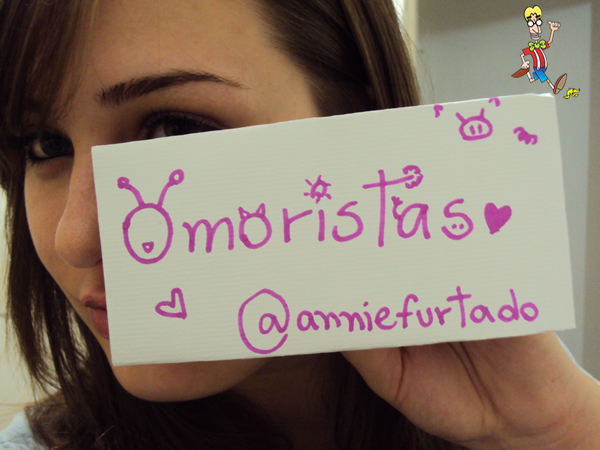 Omoristas
@anniefurtado